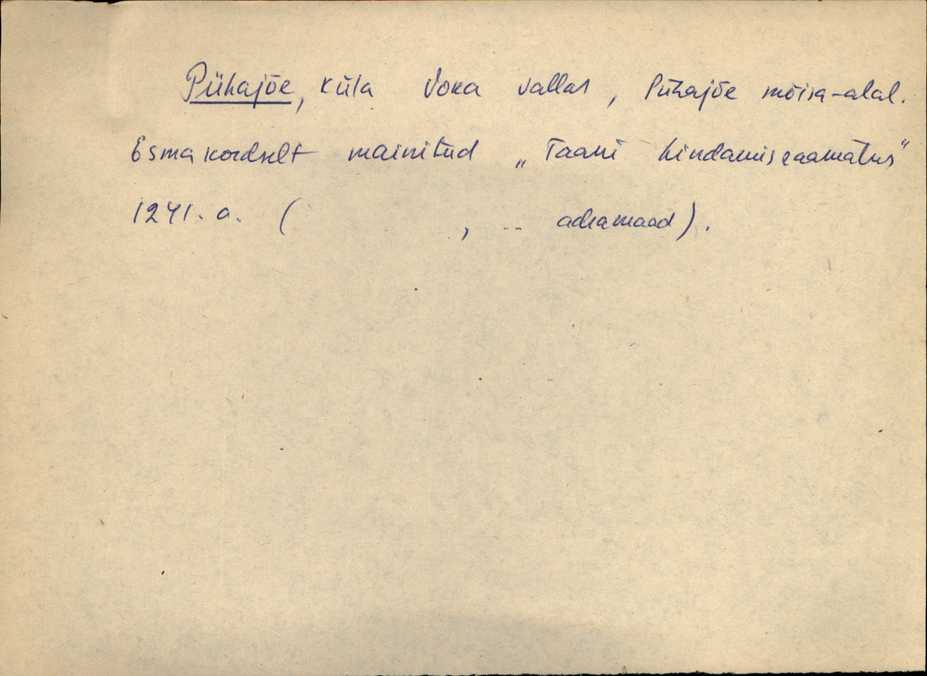 Pühajõe, küla Voka vallas, Pühajõe mõisa-alal.
Esmakordselt mainitud „Taani hindamisraamatus"
1241. a. ( , .. adramaad).